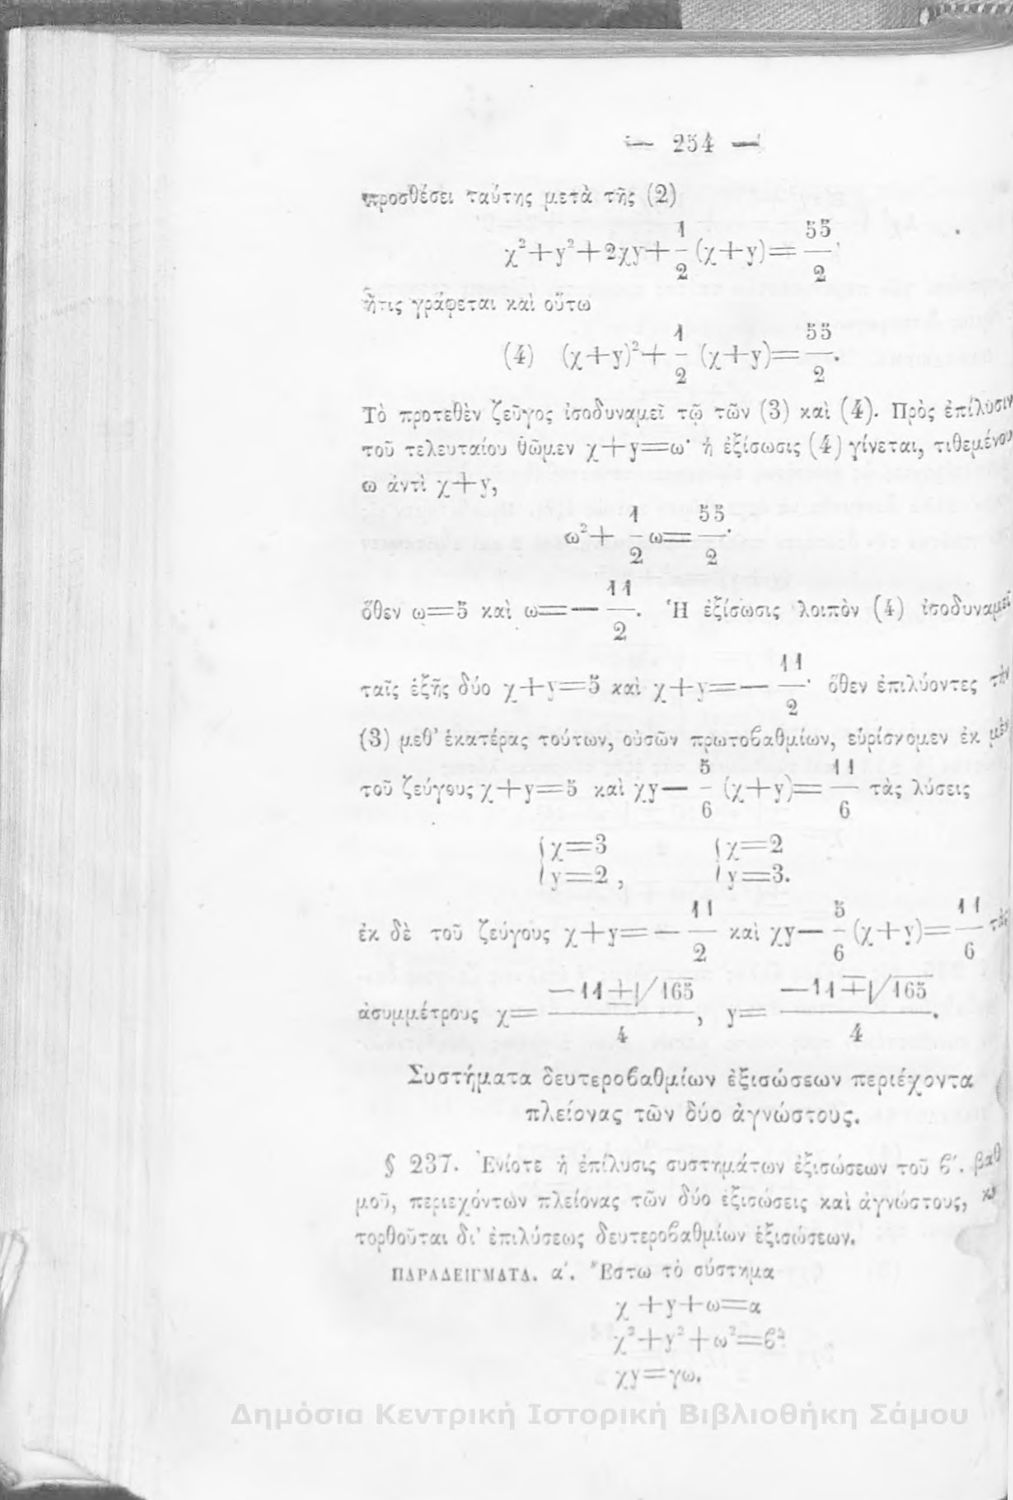 — 254 —
προσθέσει ταύτης μετὰ τῆς (2)
χ²+y²+2χy+1/2(χ+y)=55/2·
ἥτις γράφεται καὶ οὕτω
(4) (χ+y)²+1/2(χ+y)=55/2.
Τὸ προτεθὲν ζεῦγος ἰσοδυναμεῖ τῷ τῶν (3) καὶ (4). Πρὸς ἐπίλυσιν
τοῦ τελευταίου θῶμεν χ+y=ω· ἡ ἐξίσωσις (4) γίνεται, τιθεμένου
ω ἀντὶ χ+y,
ω²+1/2ω=55/2·
ὅθεν ω=5 καὶ ω=—11/2. Ἡ ἐξίσωσις λοιπὸν (4) ἰσοδυναμεῖ
ταῖς ἑξῆς δύο χ+y=5 καὶ χ+y=—11/2· ὅθεν ἐπιλύοντες τὴν
(3) μεθ' ἑκατέρας τούτων, οὐσῶν πρωτοβαθμίων, εὑρίσκομεν ἐκ μὲν
τοῦ ζεύγους χ+y=5 καὶ χy—5/6(χ+y)=11/6 τὰς λύσεις
{χ=3 {χ=2
{y=2, {y=3.
ἐκ δὲ τοῦ ζεύγους χ+y=—11/2 καὶ χy—5/6(χ+y)=11/6 τὰς
ἀσυμμέτρους χ=(—11±√165)/4, y=(—11∓√165)/4.
Συστήματα δευτεροβαθμίων ἐξισώσεων περιέχοντα
πλείονας τῶν δύο ἀγνώστους.
§ 237. Ἐνίοτε ἡ ἐπίλυσις συστημάτων ἐξισώσεων τοῦ β'. βαθ
μοῦ, περιεχόντων πλείονας τῶν δύο ἐξισώσεις καὶ ἀγνώστους,
τορθοῦται δι' ἐπιλύσεως δευτεροβαθμίων ἐξισώσεων.
ΠΑΡΑΔΕΙΓΜΑΤΑ. α'. Ἔστω τὸ σύστημα
χ+y+ω=α
χ²+y²+ω²=β²
χy=γω.
Δημόσια Κεντρική Ιστορική Βιβλιοθήκη Σάμου